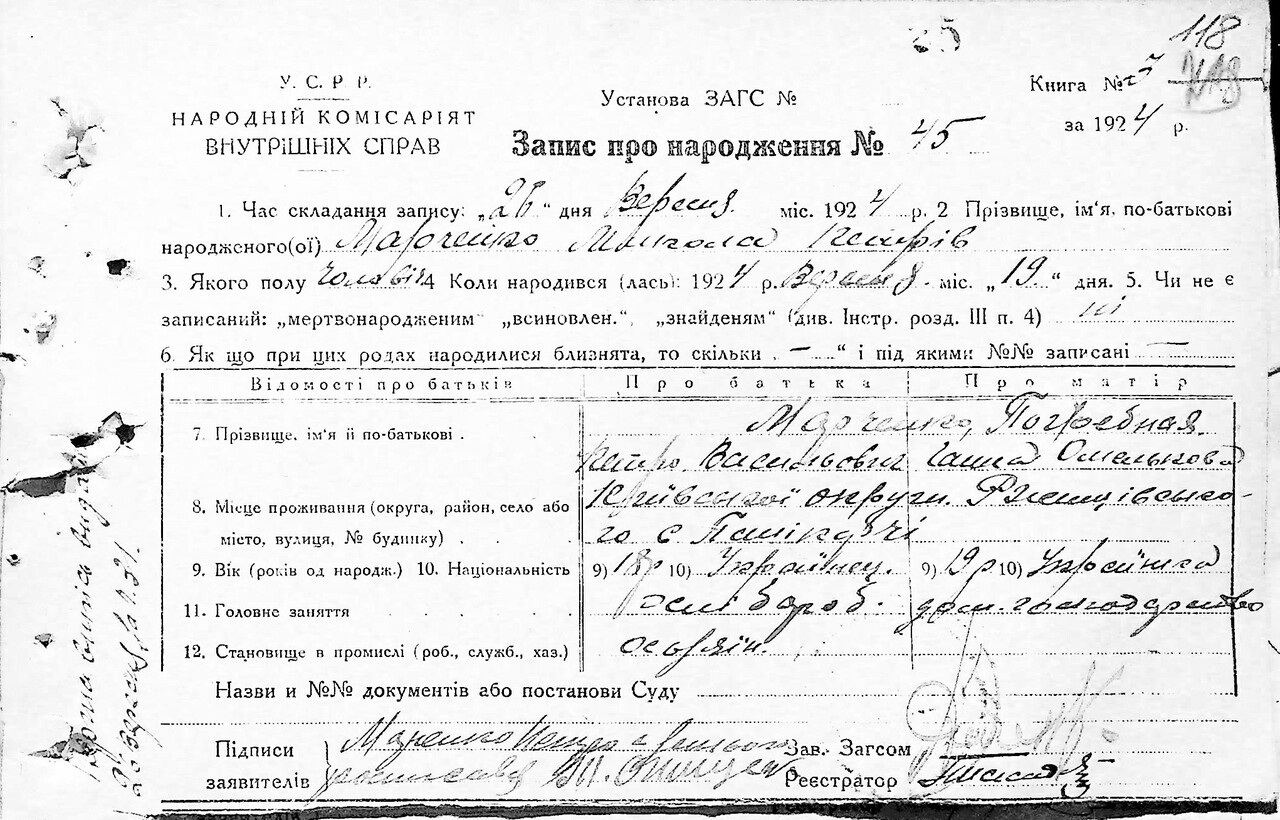 25
118
У. С. Р Р.
Установа ЗАГС №
Книга №
НАРОДНІЙ КОМІСАРІЯТ
за 1924 р.
ВНУТРІШНІХ СПРАВ
Запис про народження № 45
1. Час складання запису: „26“ дня Вересня міс. 1924 р. 2 Прізвище, ім'я, по-батькові
народженого(ої) Марченко Микола Петрів
3. Якого полу чоловіч 4 Коли народився (лась): 1924 р. Вересня міс. „19“ дня. 5. Чи не є
записаний: „мертвонародженим“ „всиновлен.“, „знайденям“ (див. Інстр. розд. III п. 4) ні
6. Як що при цих родах народилися близнята, то скільки „—“ і під якими №№ записані —
Відомості про батьків Про батька Про матір
7. Прізвище, ім'я й по-батькові . . . Марченко, Погребная
Петро Васильович Ганна Омелькова
8. Місце проживання (округа, район, село або Київської округи. Ржищівсько-
місто, вулиця, № будинку) . . . . го с
9. Вік (років од народж.) 10. Національність 9) 18р 10) Українец. 9) 19р 10) Українка
11. Головне заняття . . . . . дом. господарство
12. Становище в промислі (роб., служб., хаз.)
Назви и №№ документів або постанови Суду
Підписи Марченко Петро а Зав. Загсом
заявителів Реєстратор